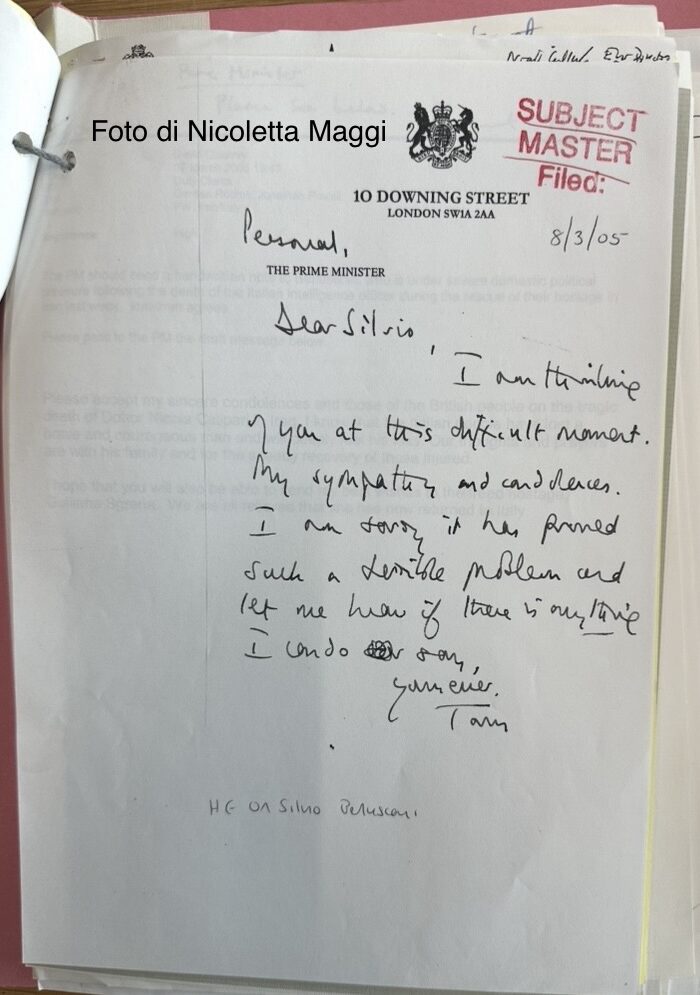 Foto di Nicoletta Maggi
SUBJECT
MASTER
Filed:
10 DOWNING STREET
LONDON SW1A 2AA
8/3/05
Personal,
THE PRIME MINISTER
Dear Silvio,
I am thinking
of you at this difficult moment.
My sympathy and condolences.
I am sorry it has proved
such a terrible problem and
let me know if there is anything
I can do or say,
Yours ever,
Tony
HE Silvio Berlusconi